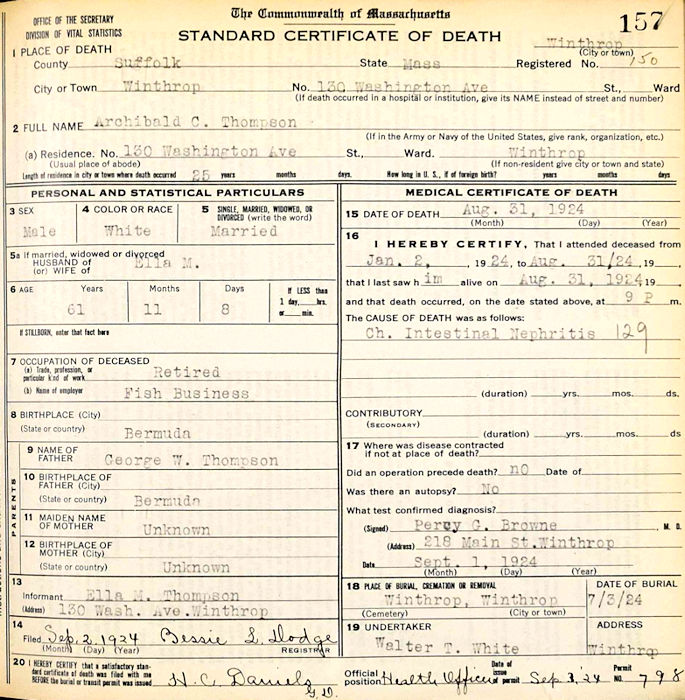 The Commonwealth of Massachusetts
157
OFFICE OF THE SECRETARY
DIVISION OF VITAL STATISTICS
STANDARD CERTIFICATE OF DEATH
Winthrop
(City or town)
1 PLACE OF DEATH
County Suffolk State Mass Registered No. 150
City or Town Winthrop No. 130 Washington Ave St., Ward
(If death occurred in a hospital or institution, give its NAME instead of street and number)
2 FULL NAME Archibald C. Thompson
(If in the Army or Navy of the United States, give rank, organization, etc.)
(a) Residence. No. 130 Washington Ave St., Ward. Winthrop
(Usual place of abode) (If non-resident give city or town and state)
Length of residence in city or town where death occurred 25 years months days. How long in U. S., if of foreign birth? years months days
PERSONAL AND STATISTICAL PARTICULARS
3 SEX
Male
4 COLOR OR RACE
White
5 SINGLE, MARRIED, WIDOWED, OR
DIVORCED (write the word)
Married
5a If married, widowed or divorced
HUSBAND of
(or) WIFE of Ella M.
6 AGE Years Months Days
61 11 8
If LESS than
1 day, hrs.
or min.
If STILLBORN, enter that fact here
7 OCCUPATION OF DECEASED
(a) Trade, profession, or
particular kind of work Retired
(b) Name of employer Fish Business
8 BIRTHPLACE (City)
(State or country) Bermuda
PARENTS
9 NAME OF
FATHER George W. Thompson
10 BIRTHPLACE OF
FATHER (City)
(State or country) Bermuda
11 MAIDEN NAME
OF MOTHER Unknown
12 BIRTHPLACE OF
MOTHER (City)
(State or country) Unknown
13
Informant Ella M. Thompson
(Address) 130 Wash. Ave.Winthrop
14
Filed Sep. 2, 1924 Bessie L. Dodge
(Month) (Day) (Year) REGISTRAR
MEDICAL CERTIFICATE OF DEATH
15 DATE OF DEATH Aug. 31, 1924
(Month) (Day) (Year)
16
I HEREBY CERTIFY, That I attended deceased from
Jan. 2, 1924, to Aug. 31/24, 19
that I last saw him alive on Aug. 31, 1924 19
and that death occurred, on the date stated above, at 9 P m.
The CAUSE OF DEATH was as follows:
Ch. Intestinal Nephritis 129
(duration) yrs. mos. ds.
CONTRIBUTORY
(SECONDARY)
(duration) yrs. mos. ds
17 Where was disease contracted
if not at place of death?
Did an operation precede death? no Date of
Was there an autopsy? No
What test confirmed diagnosis?
(Signed) Percy G. Browne M. D.
(Address) 218 Main St.Winthrop
Date Sept. 1, 1924
(Month) (Day) (Year)
18 PLACE OF BURIAL, CREMATION OR REMOVAL
Winthrop, Winthrop
(Cemetery) (City or town)
DATE OF BURIAL
7/3/24
19 UNDERTAKER
Walter T. White
ADDRESS
Winthrop
20 I HEREBY CERTIFY that a satisfactory stan-
dard certificate of death was filed with me
BEFORE the burial or transit permit was issued H. C. Daniels
G. D.
Official
position Health Officer
Date of
issue
of permit Sep. 3, 24
Permit
No. 798